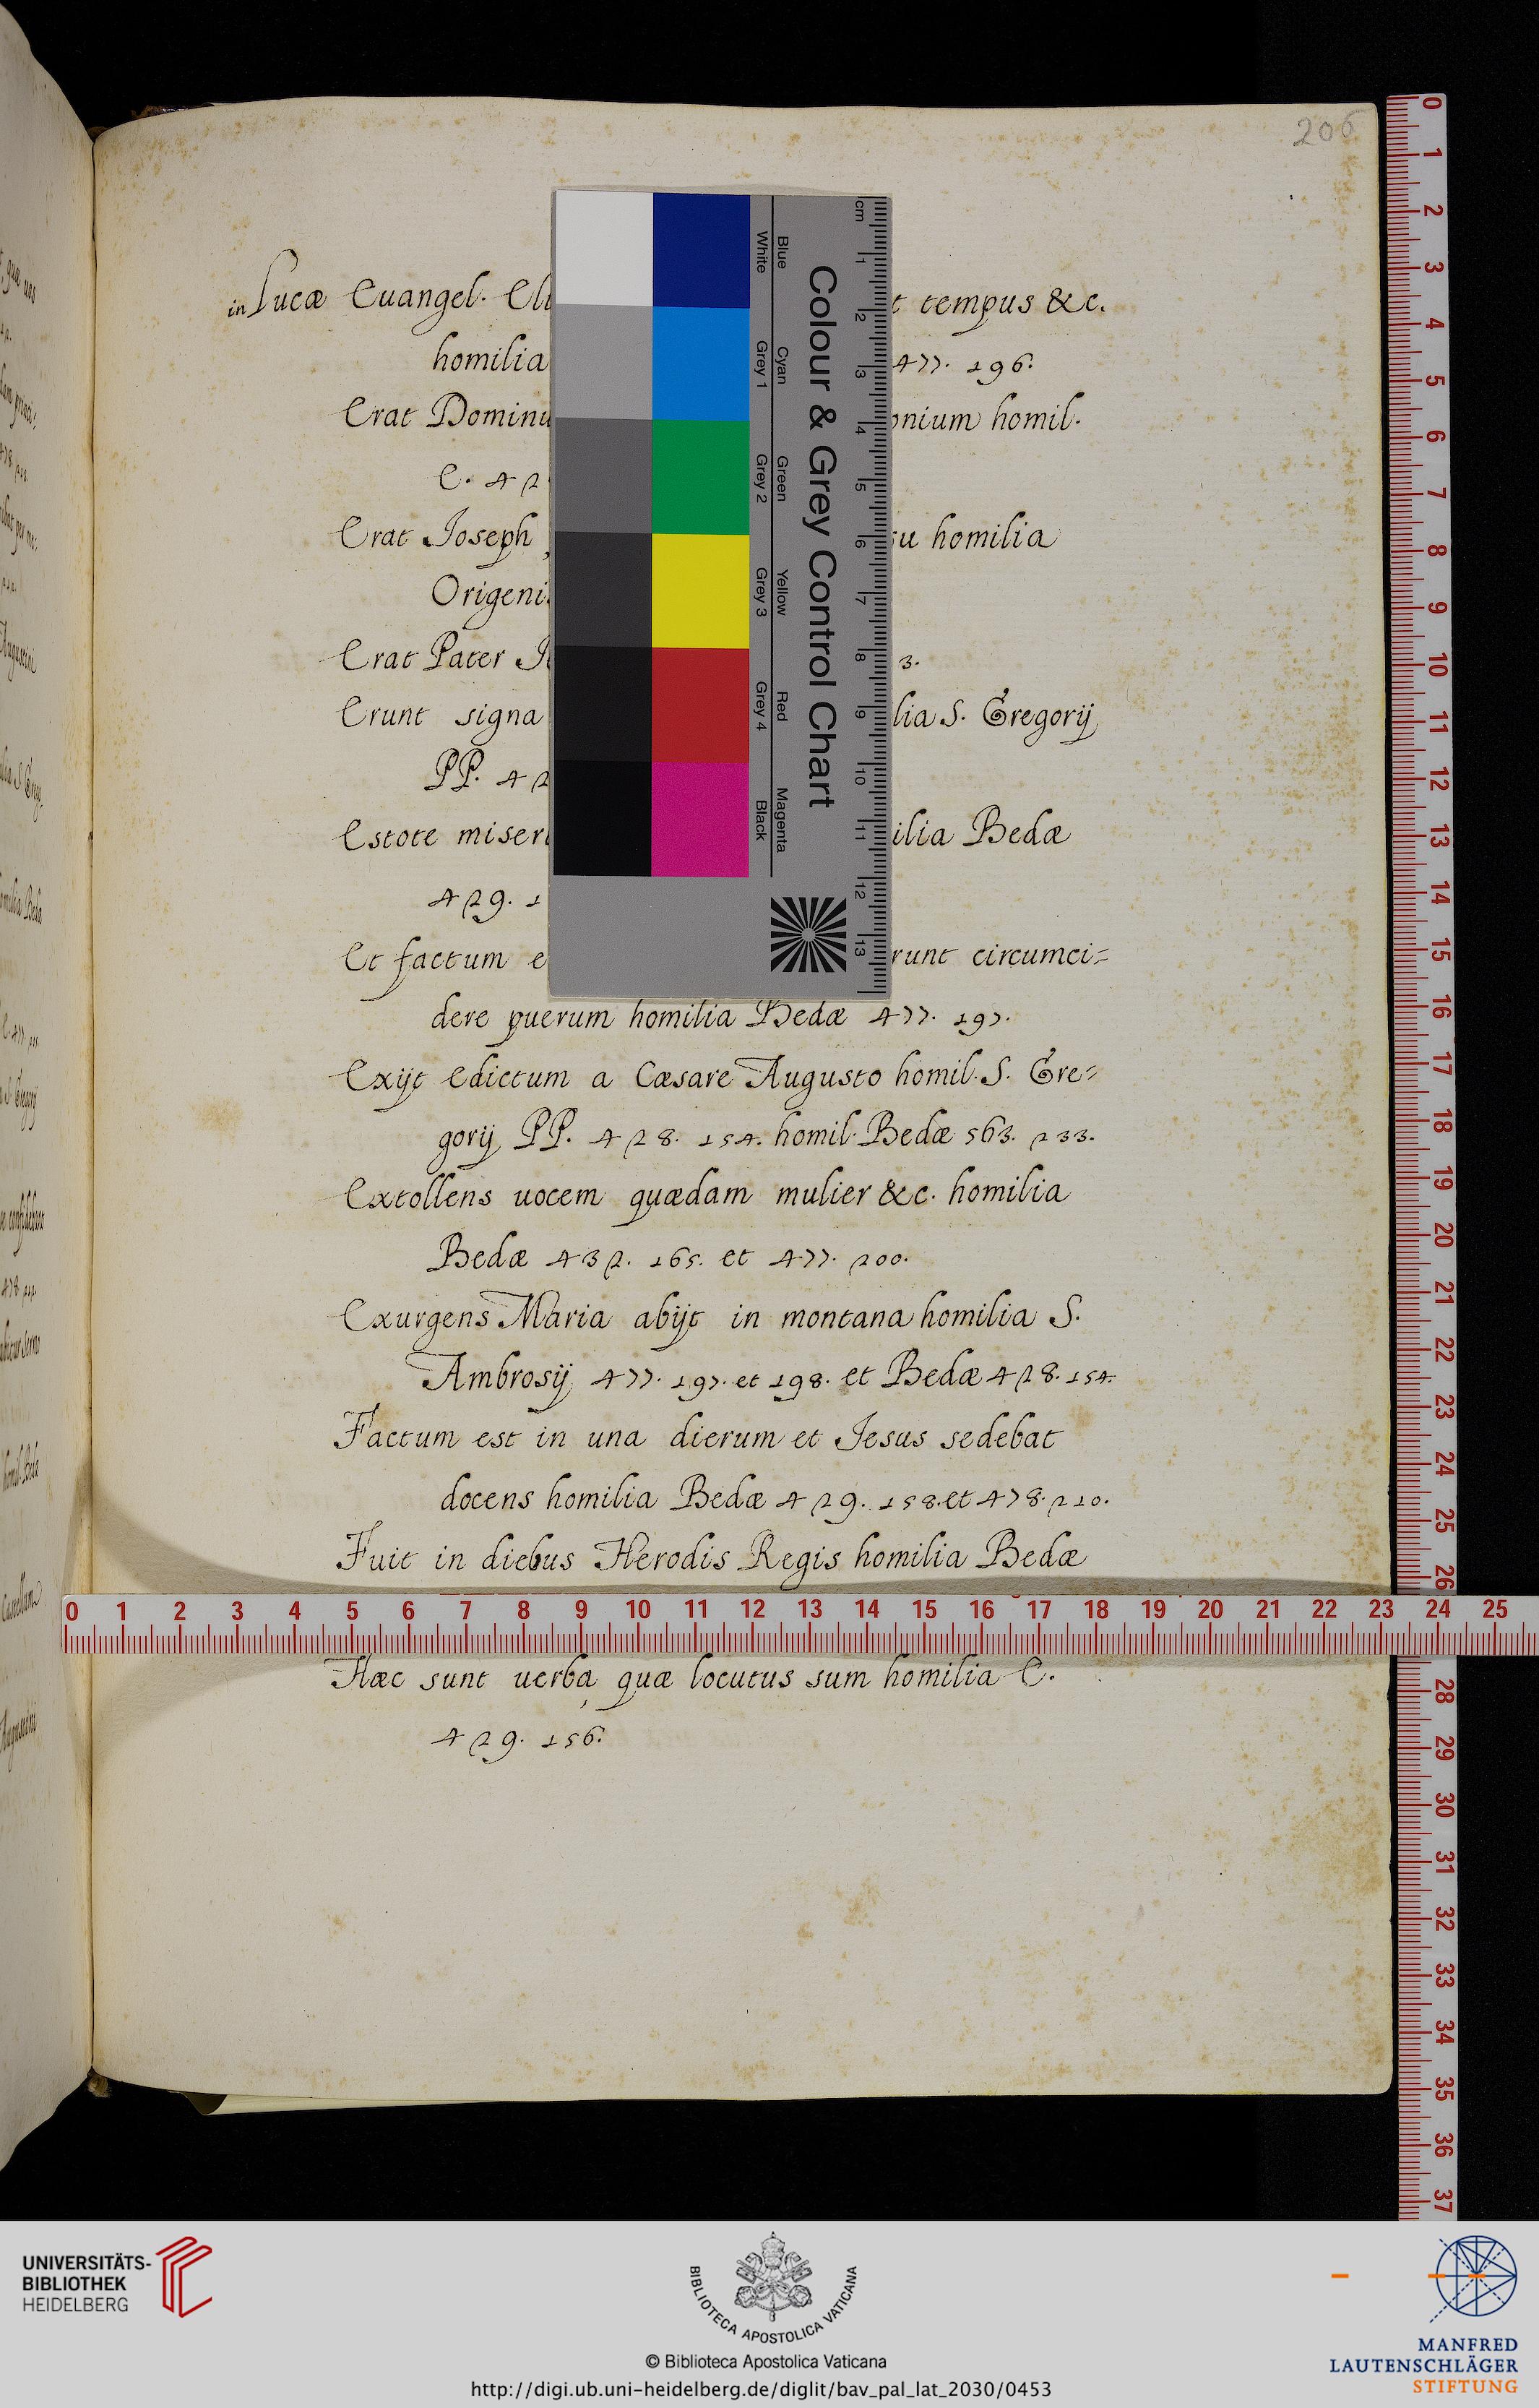 206
in Lucæ Euangel. t tempus &c.
homilia 477. 196.
Erat Dominu onium homil.
C. 42
Erat Joseph su homilia
Origeni
Erat Pater 3.
Erunt signa lia S. Gregorij
PP. 42
Estote miseri ilia Bedæ
429. 1
Et factum e runt circumci=
dere puerum homilia Bedæ 477. 197.
Exijt edictum a Cæsare Augusto homil. S. Gre=
gorij PP. 428. 154. homil. Bedæ 563. 233.
Extollens uocem quædam mulier &c. homilia
Bedæ 432. 165. et 477. 200.
Exurgens Maria abijt in montana homilia S.
Ambrosij 477. 197. et 198. et Bedæ 428. 154.
Factum est in una dierum et Jesus sedebat
docens homilia Bedæ 429. 158. et 478. 210.
Fuit in diebus Herodis Regis homilia Bedæ
Hæc sunt uerba, quæ locutus sum homilia C.
429. 156.
Colour & Grey Control Chart
Blue Cyan Green Yellow Red Magenta
White Grey 1 Grey 2 Grey 3 Grey 4 Black
cm 1 2 3 4 5 6 7 8 9 10 11 12 13
0 1 2 3 4 5 6 7 8 9 10 11 12 13 14 15 16 17 18 19 20 21 22 23 24 25 26 28 29 30 31 32 33 34 35 36 37
0 1 2 3 4 5 6 7 8 9 10 11 12 13 14 15 16 17 18 19 20 21 22 23 24 25
UNIVERSITÄTS-
BIBLIOTHEK
HEIDELBERG
BIBLIOTECA APOSTOLICA VATICANA
© Biblioteca Apostolica Vaticana
http://digi.ub.uni-heidelberg.de/diglit/bav_pal_lat_2030/0453
MANFRED
LAUTENSCHLÄGER
STIFTUNG